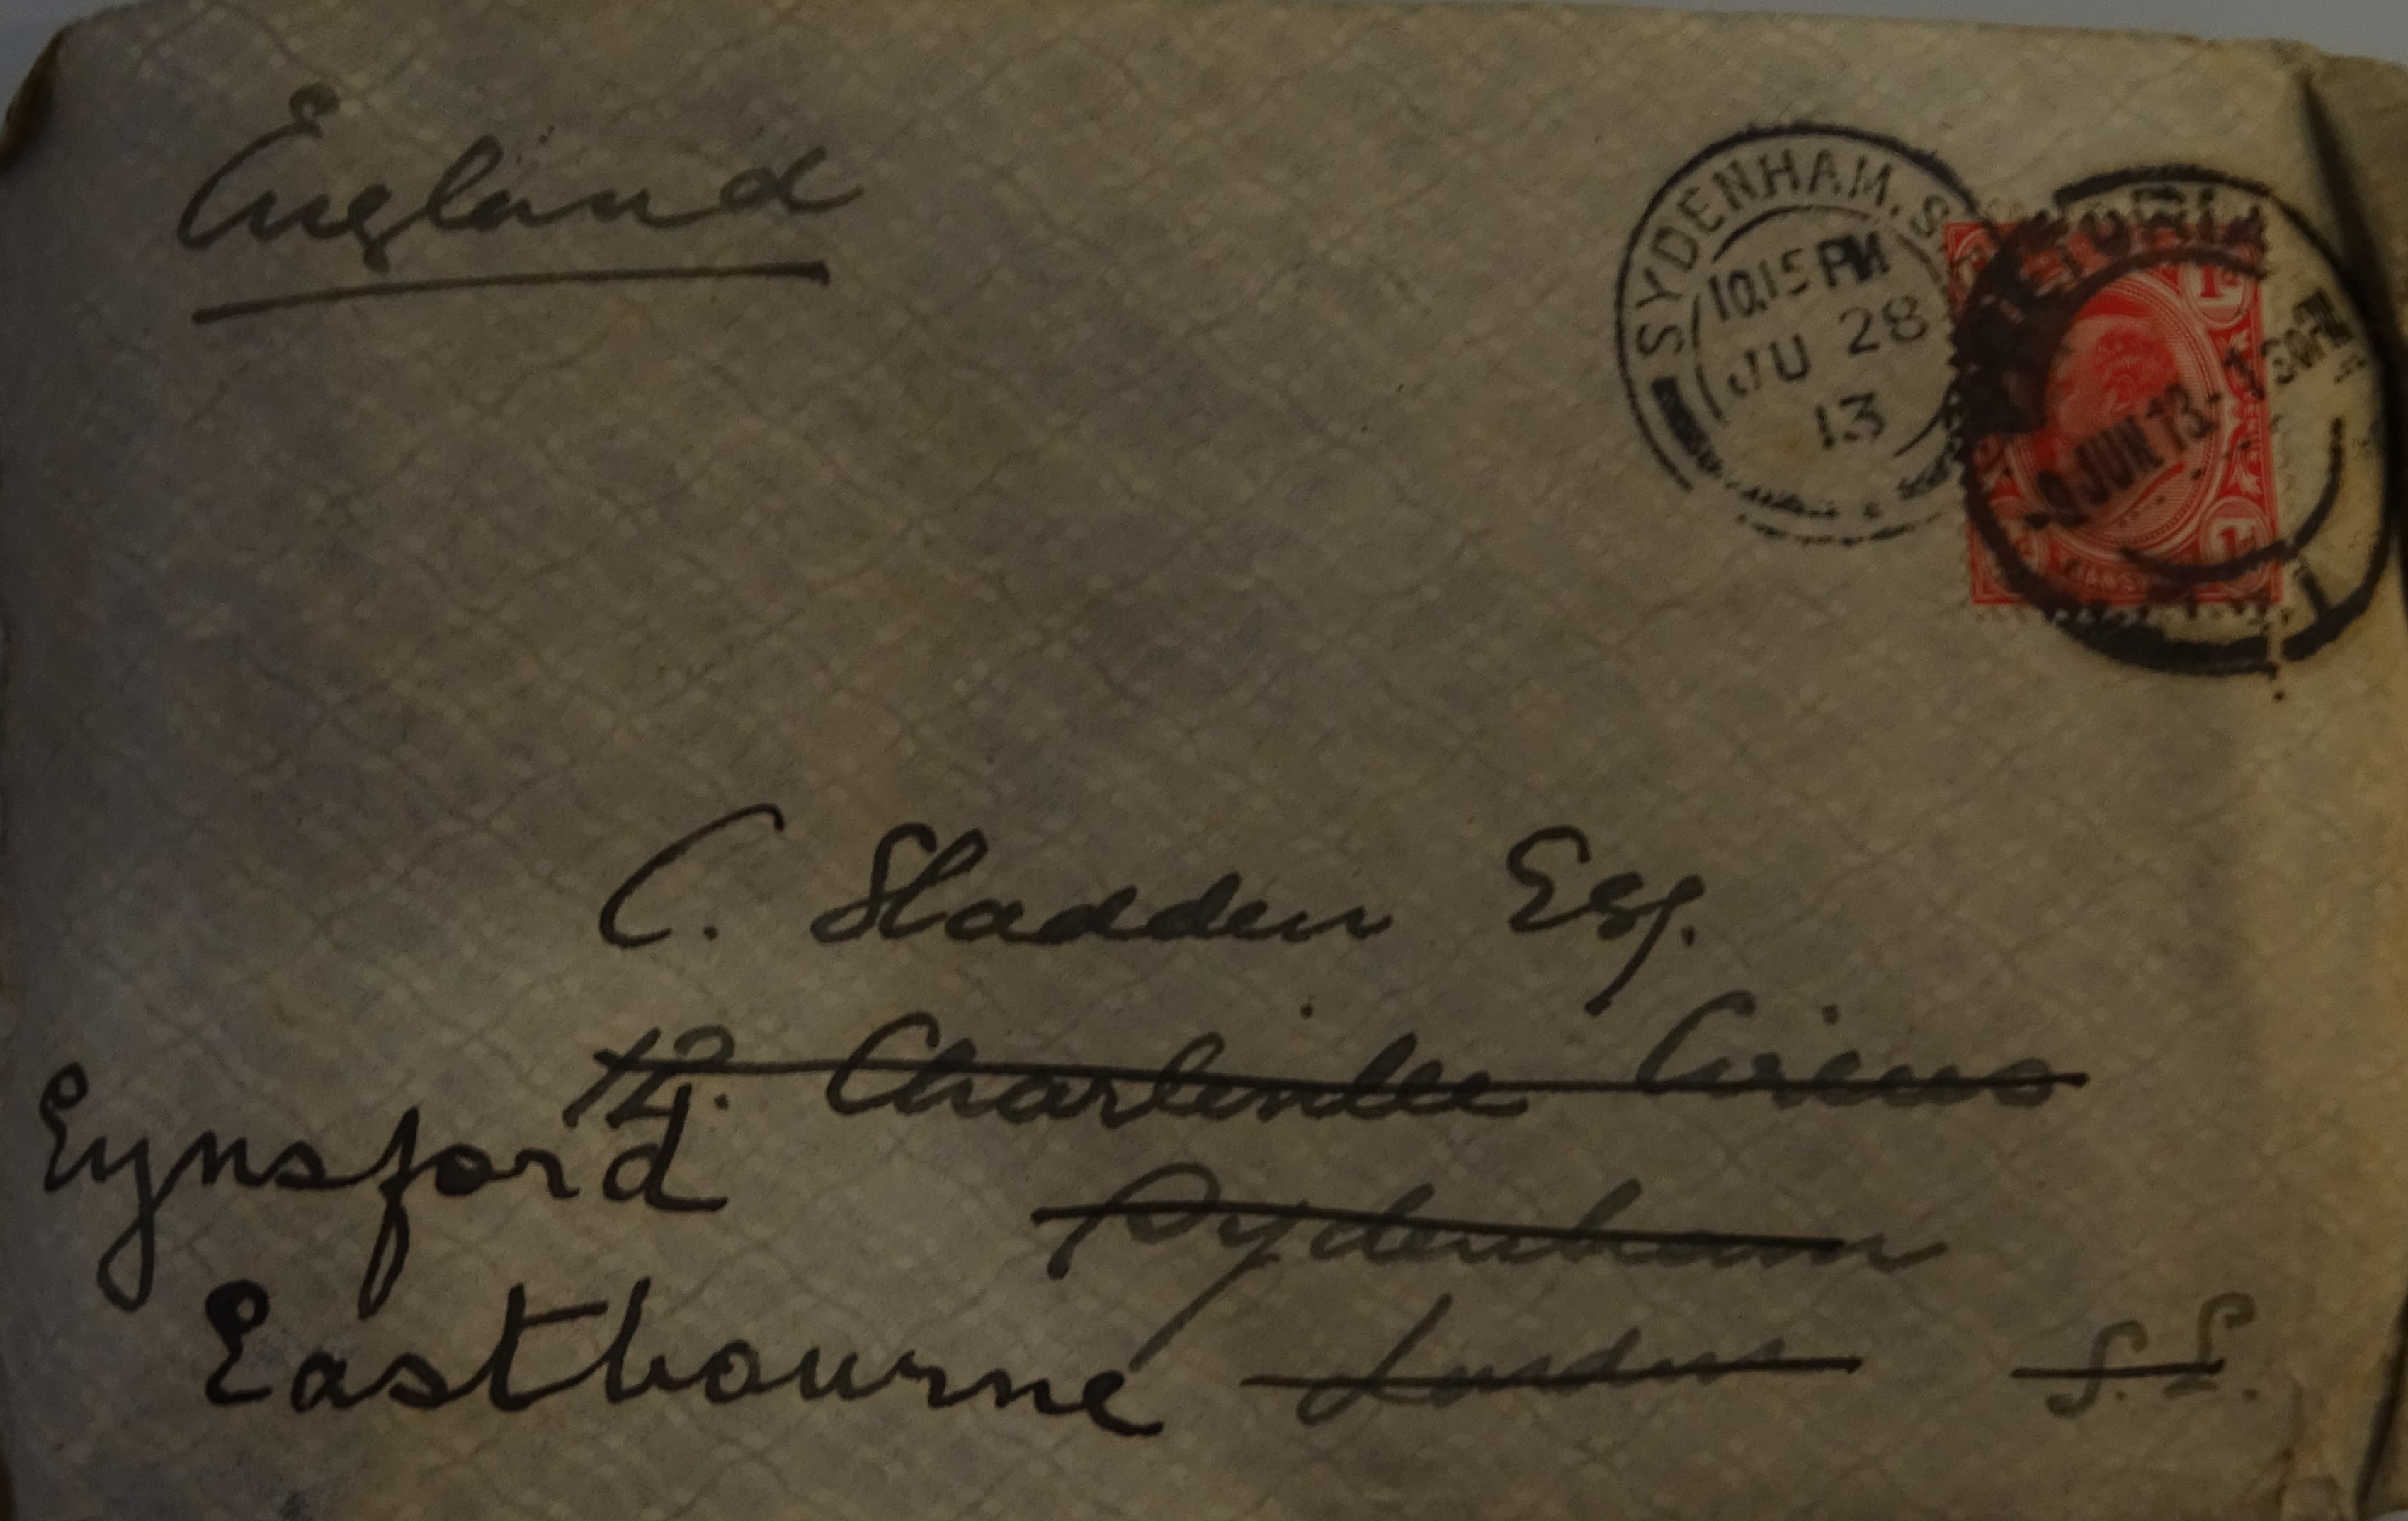 England
SYDENHAM. S.
10.15 PM
JU 28
13
PRETORIA
9 JUN 13 - 1 30 PM
1
C. Sladden Esq.
12. Charleville Circus
Sydenham
London S.E.
Eynsford
Eastbourne